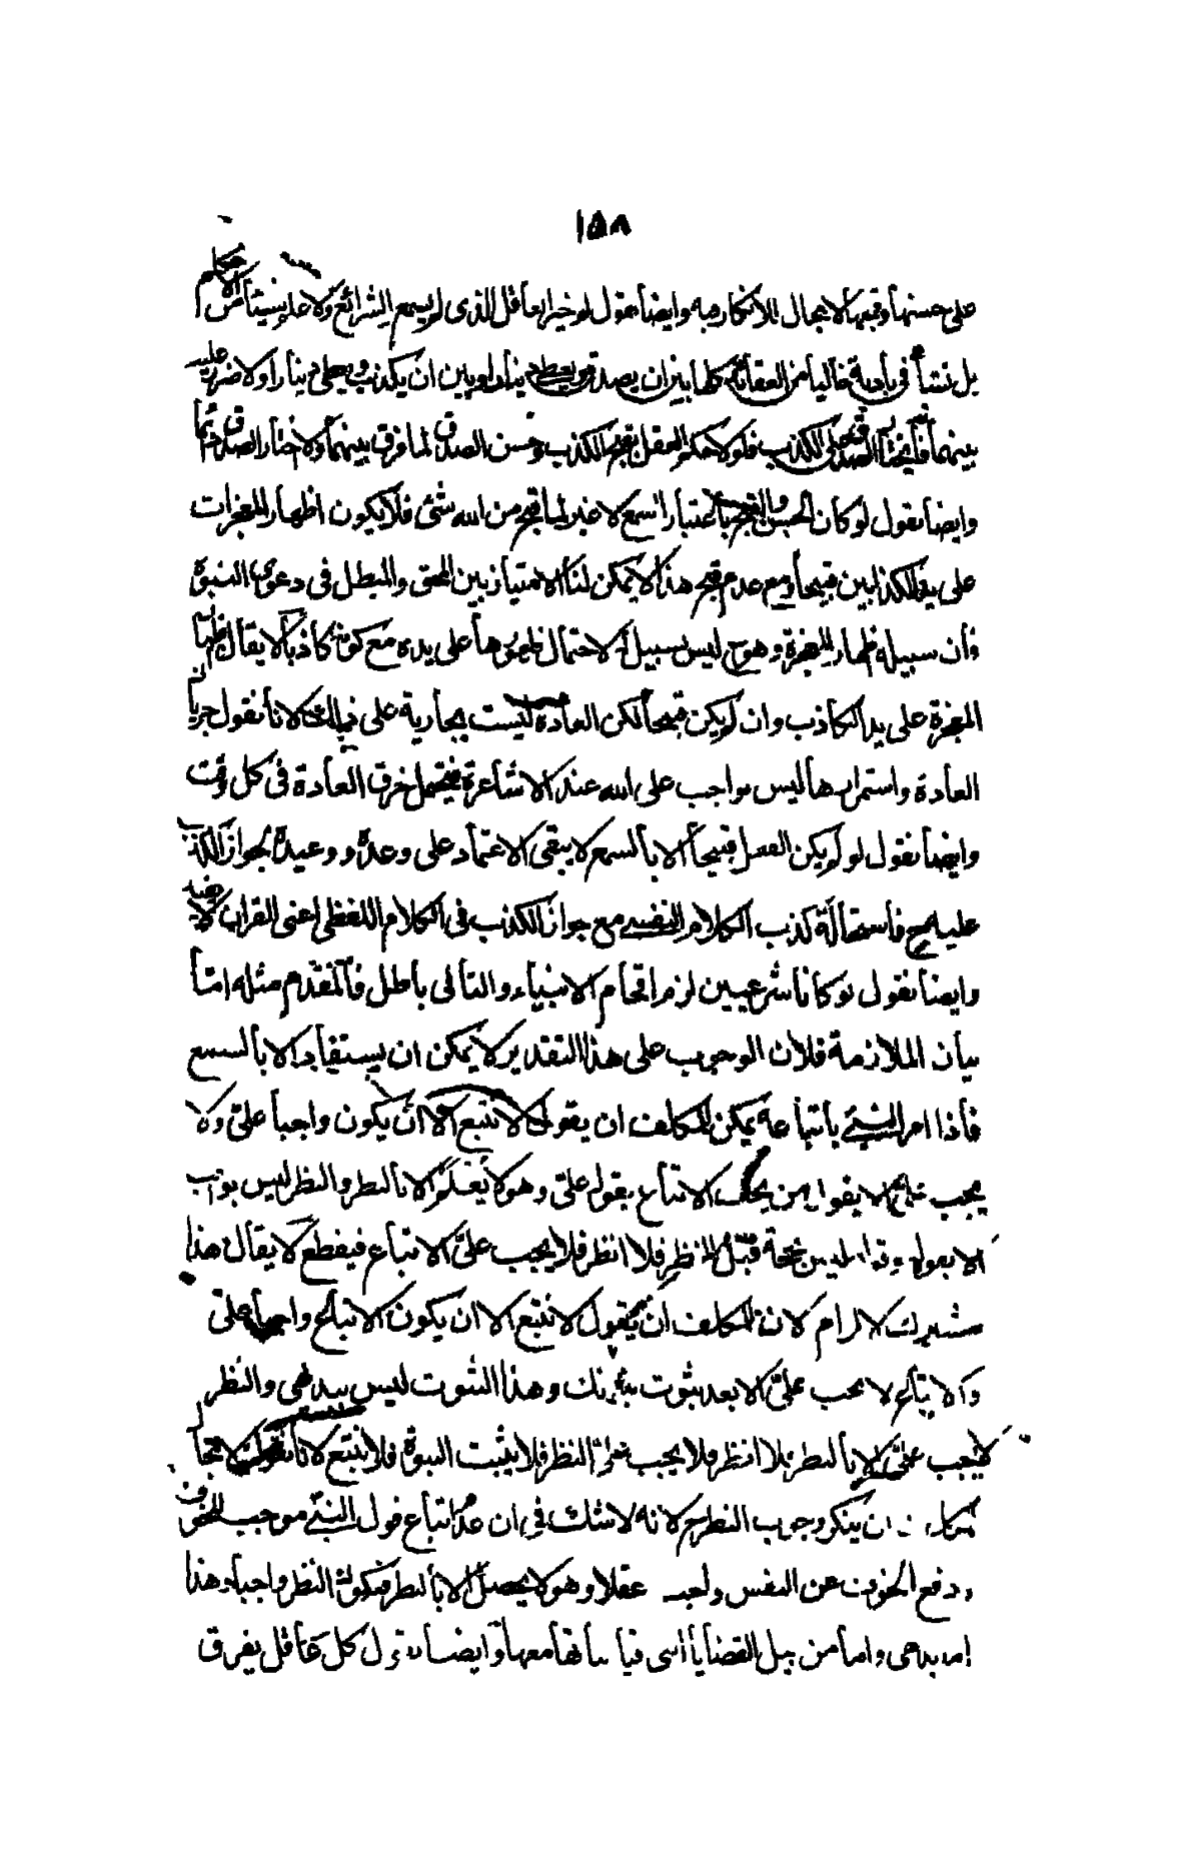 ١٥٨
على حسنها وقبحها لا مجال للانكار فيه وايضا نقول لو خير العاقل الذي لم يسمع الشرائع ولا علم شيئا من الاحكام
بل نشأ في بادية خاليا من العقائد كلها بين ان يصدق ويعطى دينارا وبين ان يكذب ويعطى دينارا ولا ضرر عليه
بينهما فانه يختار الصدق على الكذب فلولا حكم العقل بقبح الكذب وحسن الصدق لما فرق بينهما ولا اختار الصدق دائما
وايضا نقول لو كان الحسن والقبح باعتبار السمع لا غير لما قبح من الله شئ فلا يكون اظهار المعجزات
على يد الكذابين قبيحا ومع عدم قبح هذا لا يمكن لنا الامتياز بين المحق والمبطل في دعوى النبوة
فان سبيله اظهار المعجزة وهو ح ليس بسبيل لاحتمال ظهورها على يده مع كونه كاذبا لا يقال اظهار
المعجزة على يد الكاذب وان لم يكن قبيحا لكن العادة ليست بجارية على ذلك لانا نقول جريان
العادة واستمرارها ليس بواجب على الله عند الاشاعرة فيحتمل خرق العادة في كل وقت
وايضا نقول لو لم يكن الفعل قبيحا الا بالسمع لا يبقى الاعتماد على وعده ووعيده لجواز الكذب
عليه ح فاستحالة كذب الكلام النفسي مع جواز الكذب في الكلام اللفظي اعنى القران لا يفيد
وايضا نقول لو كانا شرعيين لزم افحام الانبياء والتالى باطل فالمقدم مثله اما
بيان الملازمة فلان الوجوب على هذا التقدير لا يمكن ان يستفاد الا بالسمع
فاذا امر النبي باتباعه يمكن للمكلف ان يقول لا نتبع الا ان يكون واجبا على ولا
يجب الا بقول من يجب الاتباع بقوله على وهو لا يعلم الا بالنظر والنظر ليس بواجب
الا بقوله وقوله ليس بحجة قبل النظر فلا انظر فلا يجب على الاتباع فيفطع لا يقال هذا
مشترك الالزام لان للمكلف ان يقول لا نتبع الا ان يكون الاتباع واجبا على
والاتباع لا يجب على الا بعد ثبوت نبوتك وهذا الثبوت ليس ببدهي والنظر
لا يجب على الا بالنظر فلا انظر فلا يجب على النظر فلا يثبت النبوة فلا نتبع لانا نقول لا مجال
ان ينكر وجوب النظر ح لانه لا شك في ان عدم اتباع قول النبي موجب للخوف
ودفع الخوف عن النفس واجب عقلا وهو لا يحصل الا بالنظر فيكون النظر واجبا وهذا
اما بدهى واما من قبيل القضايا التى قياساتها معها وايضا نقول كل عاقل يفرق